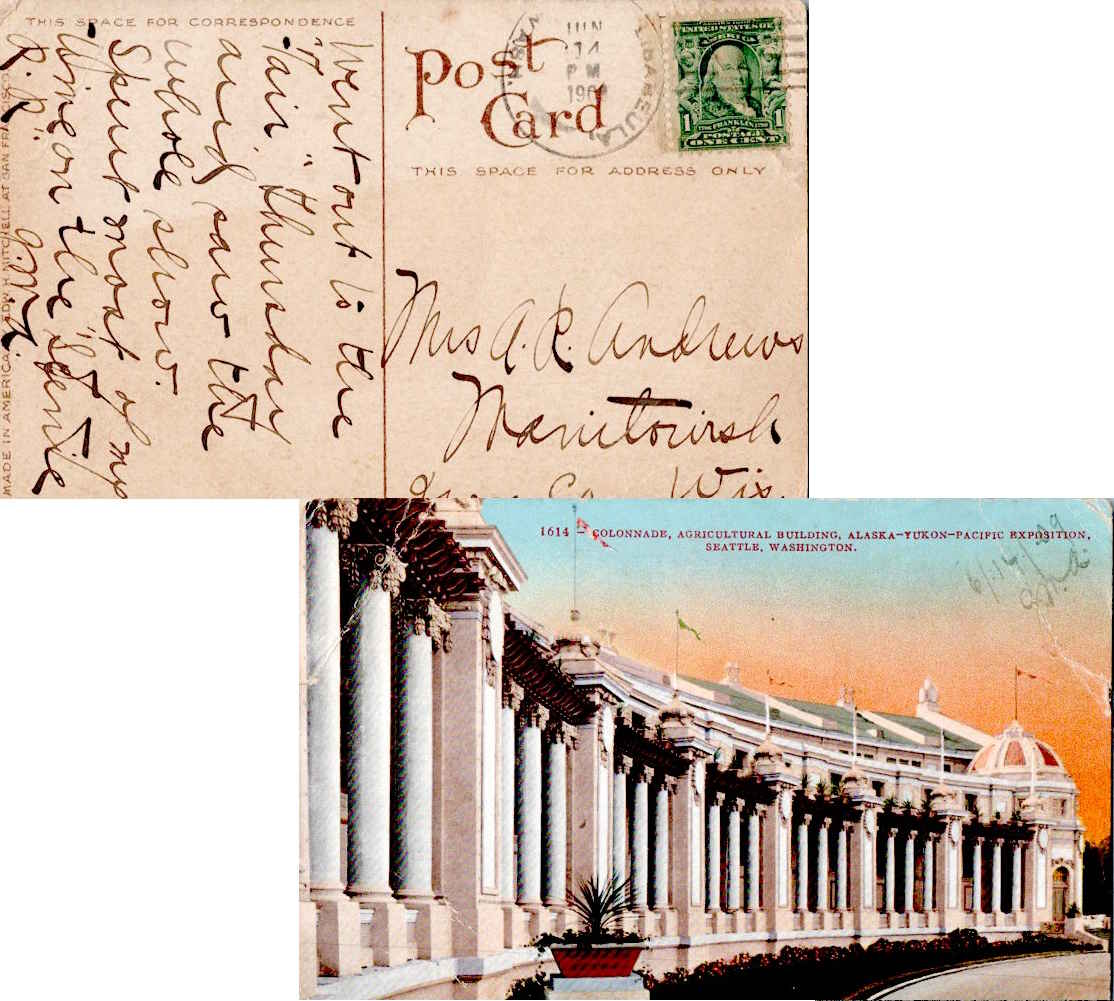 THIS SPACE FOR CORRESPONDENCE
Went out to the
"Fair" thursday
and saw the
whole show.
Spent most of my
time on the "Scenic
R.R."
MADE IN AMERICA. EDW. H. MITCHELL AT SAN FRANCISCO
Post
Card
JUN
14
PM
190
UNITED STATES OF
AMERICA
1 FRANKLIN 1
POSTAGE
ONE CENT
THIS SPACE FOR ADDRESS ONLY
Mrs A. R. Andrews
Manitowish
Co. Wis.
1614 – COLONNADE, AGRICULTURAL BUILDING, ALASKA–YUKON–PACIFIC EXPOSITION,
SEATTLE, WASHINGTON.